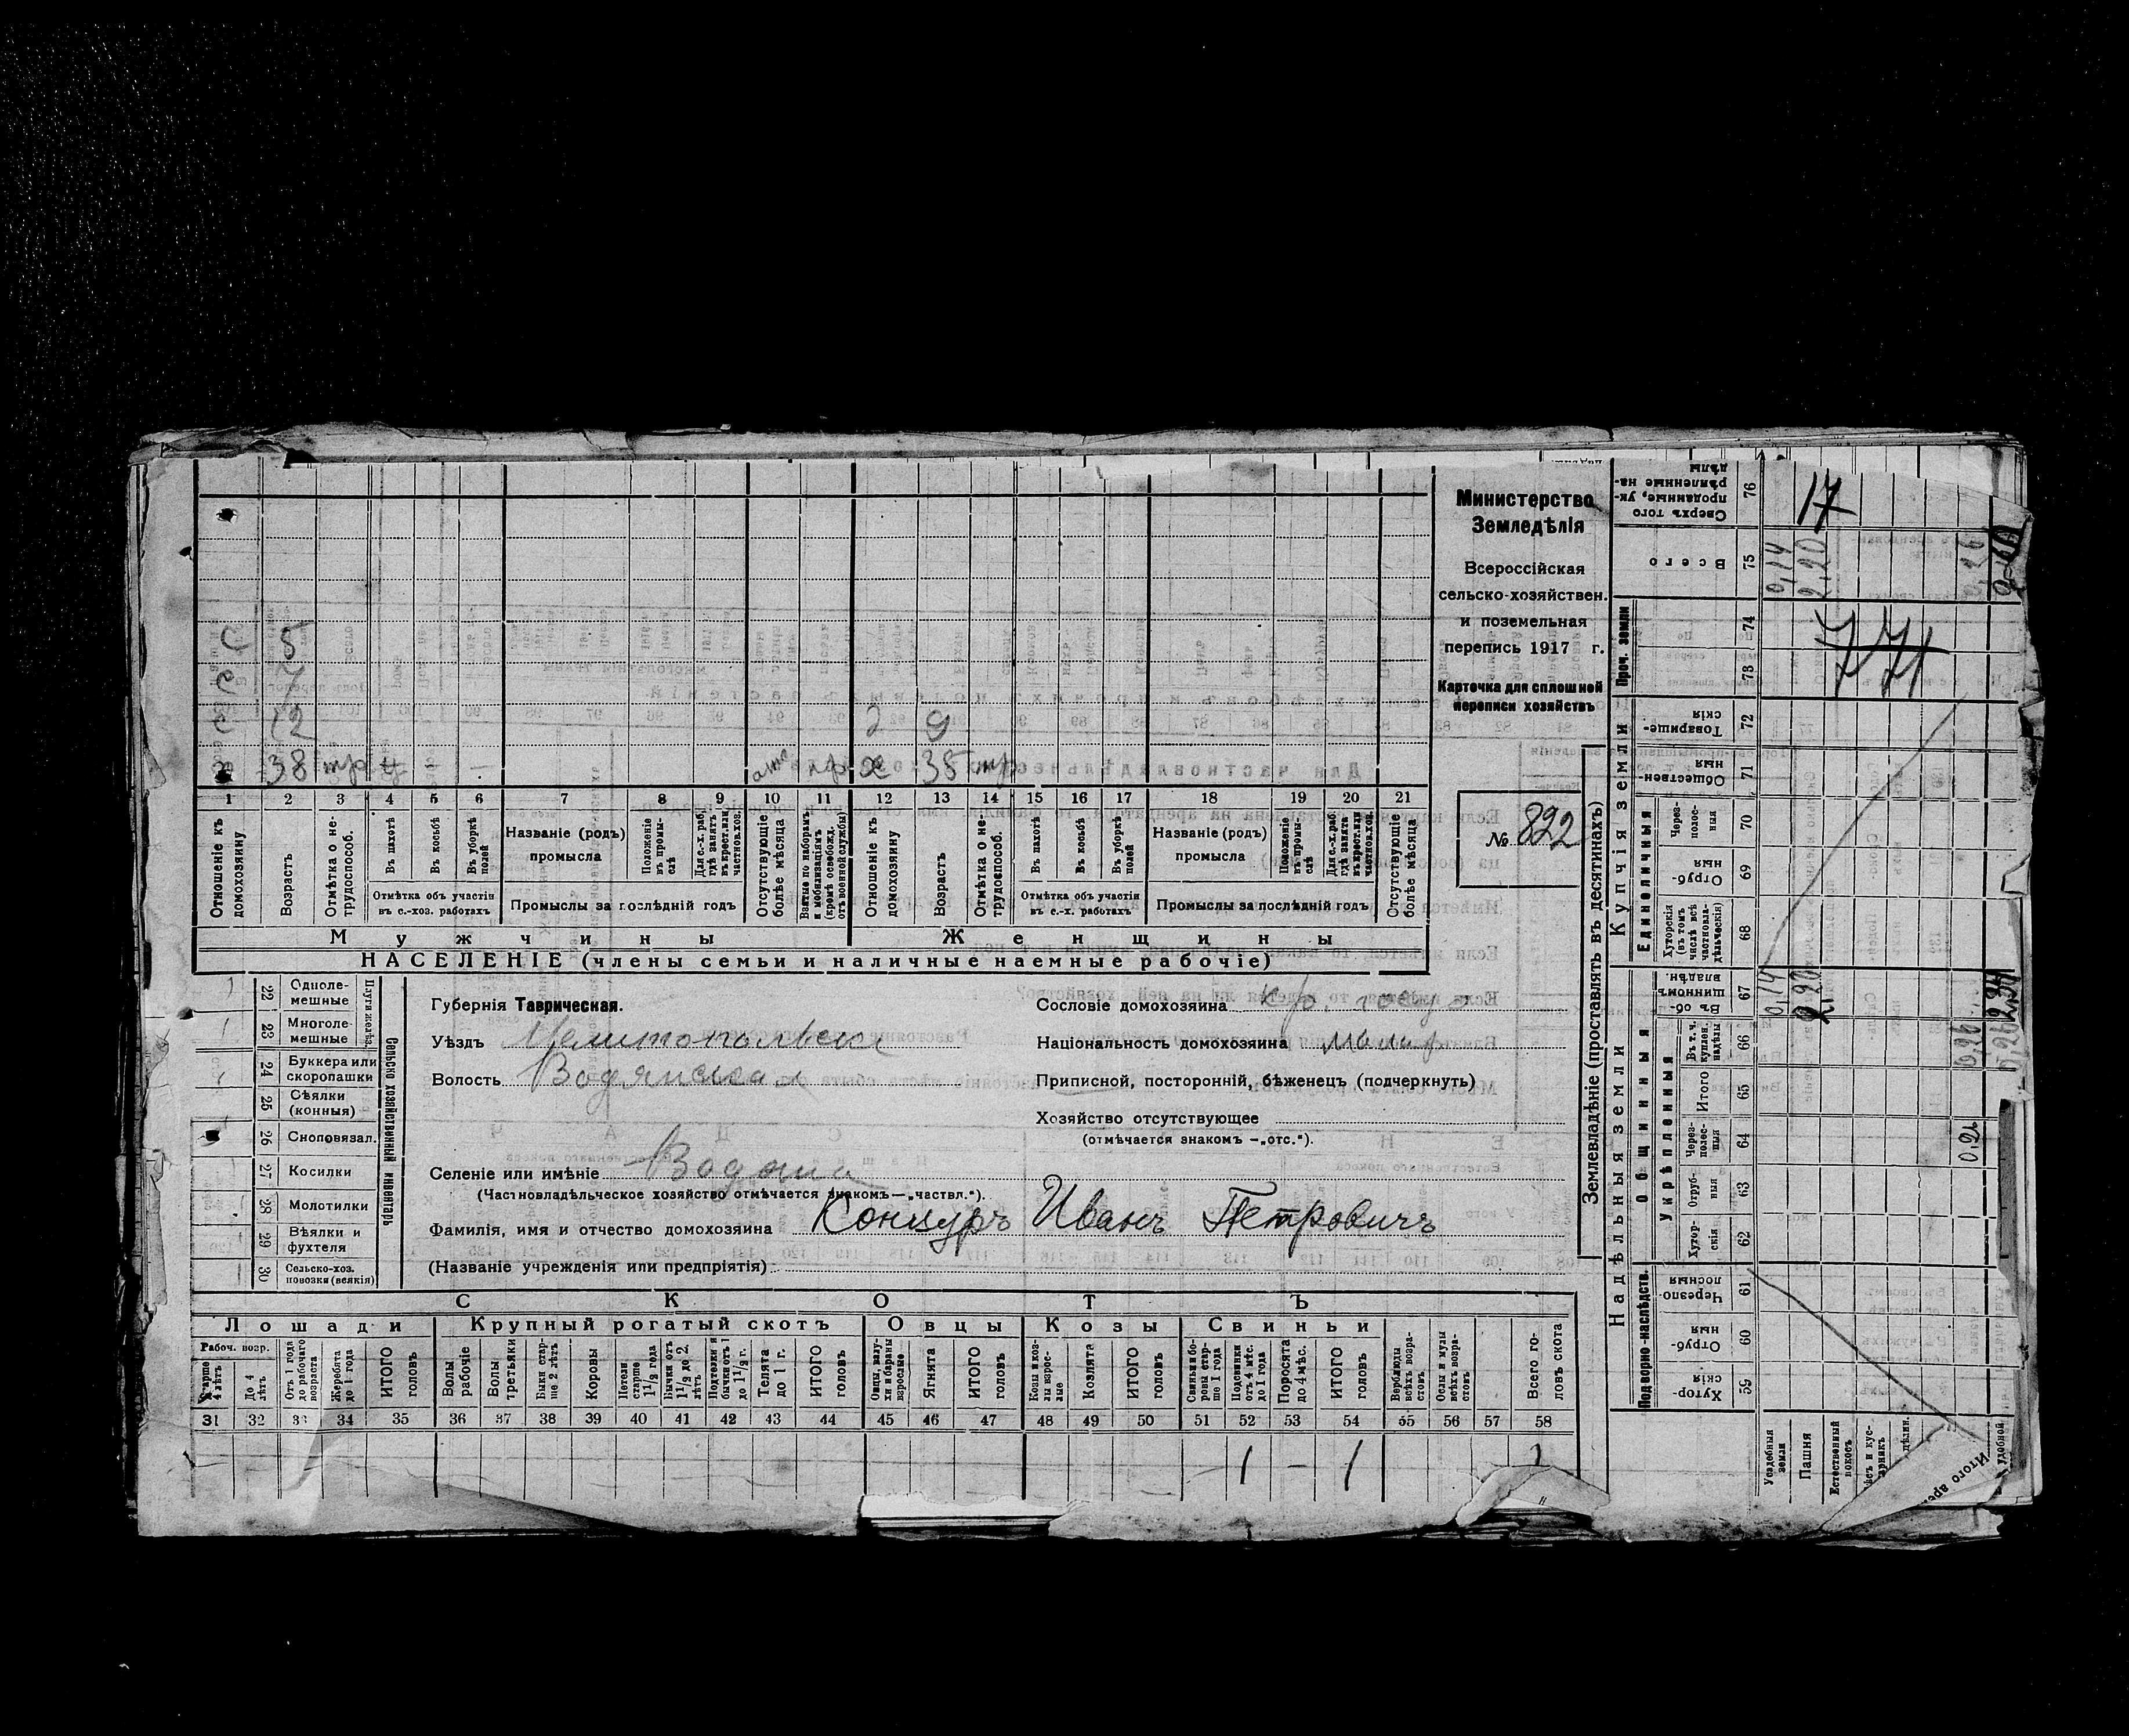 С 5
С 7
С 12 д 9
х 38 тр отс пр ж 35 тр
1 2 3 4 5 6 7 8 9 10 11 12 13 14 15 16 17 18 19 20 21
Отношеніе къ домохозяину
Возрастъ
Отмѣтка о не-трудоспособ.
Въ пахотѣ
Въ косьбѣ
Въ уборкѣ полей
Отмѣтка объ участіи въ с.-хоз. работахъ
Названіе (родъ) промысла
Положеніе въ промы-слѣ
Для с.-х. раб. гдѣ занятъ въ крест. или частнов. хоз.
Промыслы за послѣдній годъ
Отсутствующіе болѣе мѣсяца
Взятые по наборамъ и мобилизаціямъ (кромѣ освобожд. отъ военной службы)
Отношеніе къ домохозяину
Возрастъ
Отмѣтка о не-трудоспособ.
Въ пахотѣ
Въ косьбѣ
Въ уборкѣ полей
Отмѣтка объ участіи въ с.-х. работахъ
Названіе (родъ) промысла
Положеніе въ промы-слѣ
Для с.-х. раб. гдѣ занята въ крест. или частнов. хоз.
Промыслы за послѣдній годъ
Отсутствующіе болѣе мѣсяца
Мужчины Женщины
НАСЕЛЕНІЕ (члены семьи и наличные наемные рабочіе)
Министерство
Земледѣлія
Всероссійская
сельско-хозяйствен.
и поземельная
перепись 1917 г.
Карточка для сплошной
переписи хозяйствъ
№ 822
22 Одноле-мешные
23 Многоле-мешные
Плуги желѣз.
24 Буккера или скоропашки
25 Сѣялки (конныя)
26 Сноповязал.
27 Косилки
28 Молотилки
29 Вѣялки и фухтеля
30 Сельско-хоз. повозки (всякія)
Сельско хозяйственный инвентарь
Губернія Таврическая.
Уѣздъ Мелитопольскій
Волость Водянская
Селеніе или имѣніе Водяна
(Частновладѣльческое хозяйство отмѣчается знакомъ—„частвл.“).
Фамилія, имя и отчество домохозяина Концуръ Иванъ Петровичъ
(Названіе учрежденія или предпріятія)
Сословіе домохозяина кр. госу
Національность домохозяина малор
Приписной, посторонній, бѣженецъ (подчеркнуть)
Хозяйство отсутствующее
(отмѣчается знакомъ —„отс.“).
СКОТЪ
Лошади Крупный рогатый скотъ Овцы Козы Свиньи
Рабоч. возр.
Старше 4 лѣтъ
До 4 лѣтъ
Отъ 1 года до рабочаго возраста
Жеребята до 1 года
ИТОГО головъ
Волы рабочіе
Волы третьяки
Быки стар-ше 2 лѣтъ
Коровы
Нетели старше 1 1/2 года
Бычки отъ 1 1/2 до 2. лѣтъ
Подтелки и бычки отъ 1 до 1 1/2 г.
Телята до 1 г.
ИТОГО головъ
Овцы, валу-хи и бараны взрослые
Ягнята
ИТОГО головъ
Козы и коз-лы взрос-лые
Козлята
ИТОГО головъ
Свиньи и бо-ровы стар-ше 1 года
Подсвинки отъ 4 мѣс. до 1 года
Поросята до 4 мѣс.
ИТОГО головъ
Верблюды всѣхъ возра-стовъ
Ослы и мулы всѣхъ возра-стовъ
Всего го-ловъ скота
31 32 33 34 35 36 37 38 39 40 41 42 43 44 45 46 47 48 49 50 51 52 53 54 55 56 57 58
– 1 – 1 1
Землевладѣніе (проставлять въ десятинахъ)
Надѣльныя земли
Купчія земли
Проч. земли
Подворно-наслѣдств.
Общинныя
Укрѣпленныя
Единоличныя
Хутор-скія 59
Отруб-ныя 60
Черезпо-лосныя 61
Хутор-скія 62
Отруб-ныя 63
Через-полос-ныя 64
Итого 65
Въ т. ч. куплен. надѣлы 66
Въ об-щинномъ владѣн. 67
Хуторскія (въ томъ числѣ всѣ частновла-дѣльческія) 68
Отруб-ныя 69
Через-полос-ныя 70
Обществен-ныя 71
Товарище-скія 72
73
74
Всего 75
Сверхъ того проданные, ук-рѣпленные на-дѣлы 76
17
0,14
2,20
0,26
2-60
77
0,14
2,20
0,26
2,34
0,26
Усадебныя земли
Пашня
Естественный покосъ
Итого
удобной